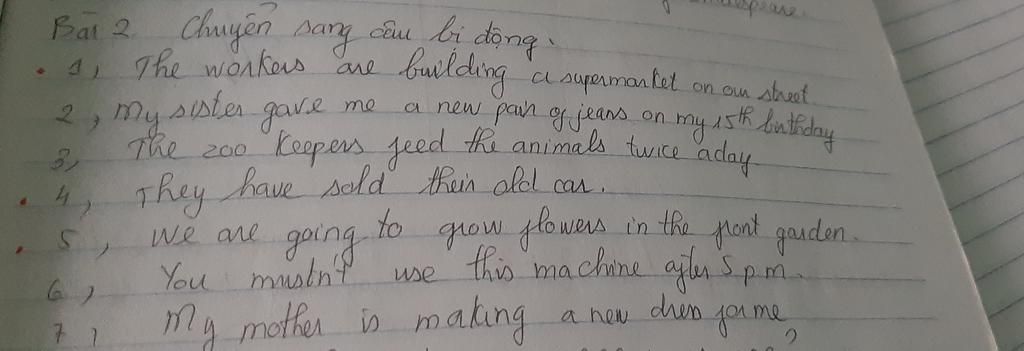 Bài 2 Chuyển sang câu bị động.
1, The workers are building a supermarket on our street.
2, My sister gave me a new pair of jeans on my 15th birthday
3, The zoo keepers feed the animals twice a day.
4, They have sold their old car.
5, We are going to grow flowers in the front garden.
6, You mustn't use this machine after 5 p.m.
7, My mother is making a new dress for me